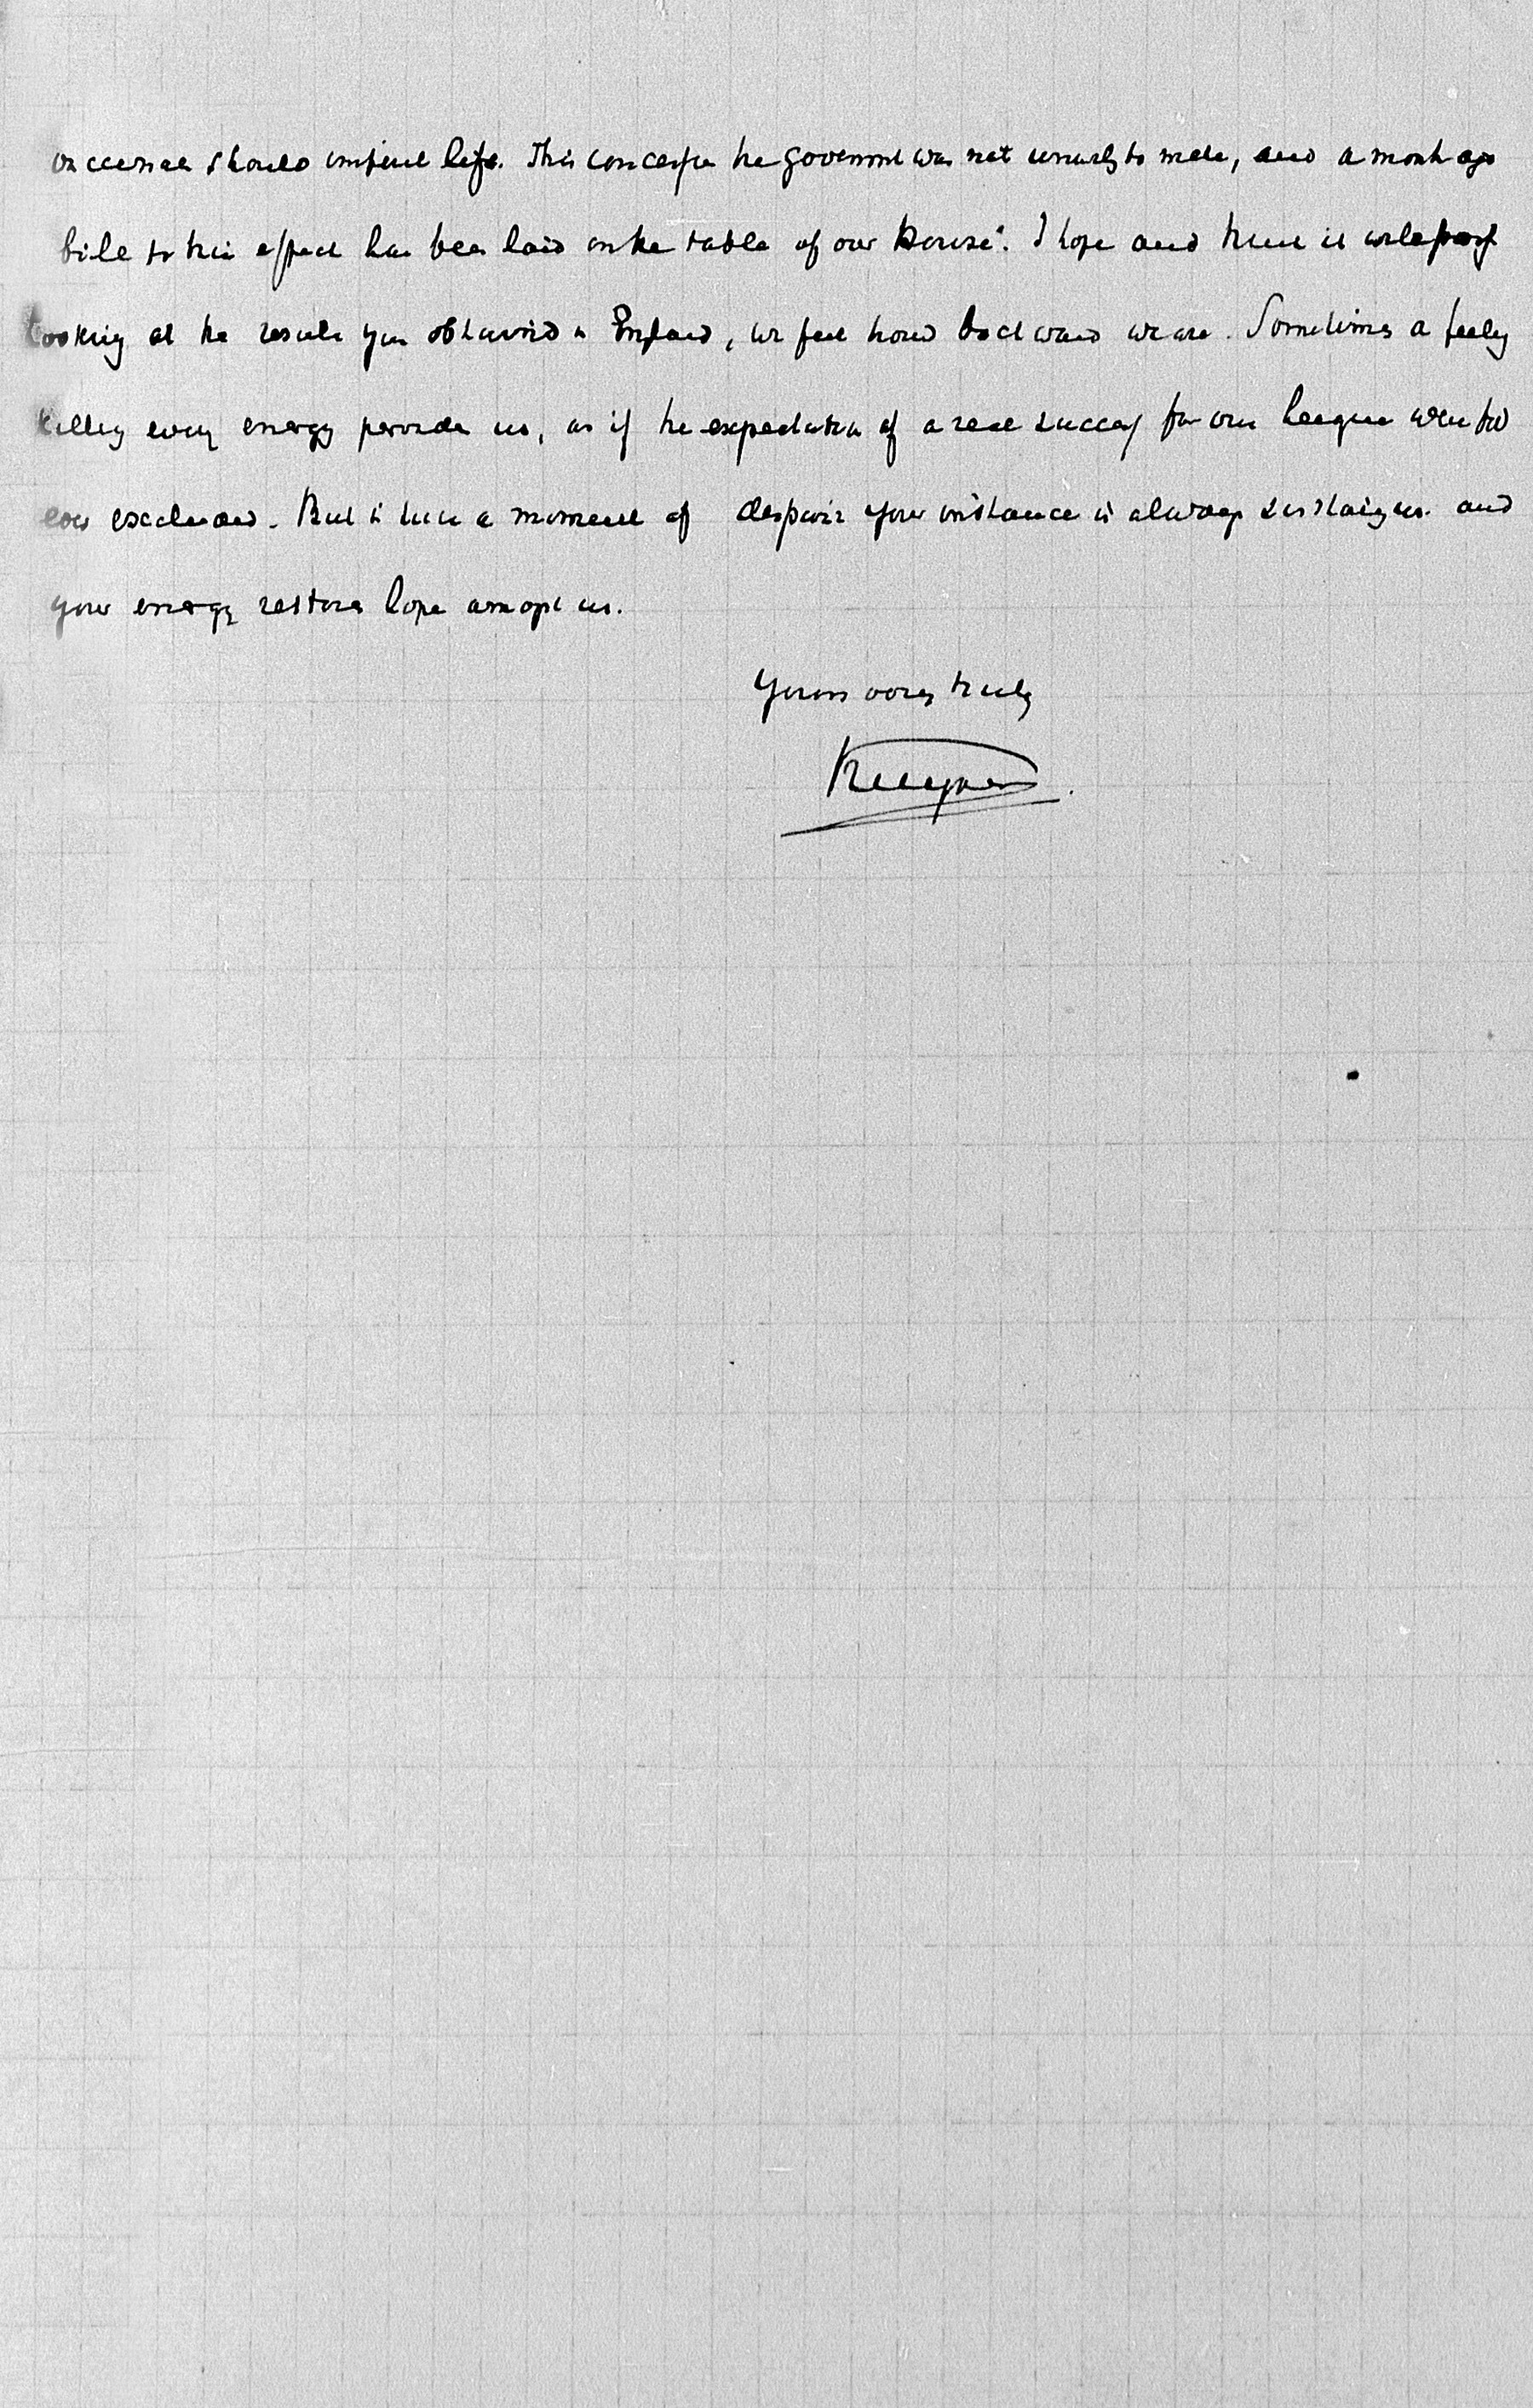 vaccinal should imperil life. This concession the Goverment was not unwilling to make, and a month ago
bill to this effect has been laid on the table of our House". I hope and trust it will pass
looking at the results you obtained in England, we feel how backward we are. Sometimes a feeling
killing every energy pervades us, as if the expectation of a real success for our League were for
ever excluded. But in such a moment of despair your instance is always sustaining us and
your energy restores hope amongst us.
Yours very truly